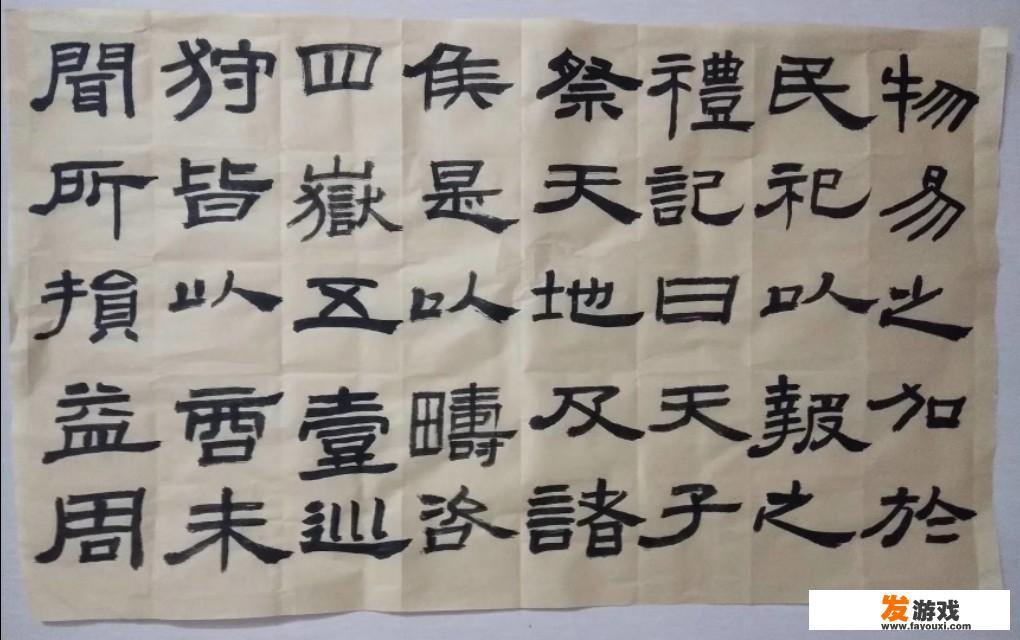 物易之加於
民祀以報之
禮記曰天子
祭天地及諸
侯是以疇咨
四嶽五壹巡
狩皆以商未
聞所損益周
发游戏
www.fayouxi.com